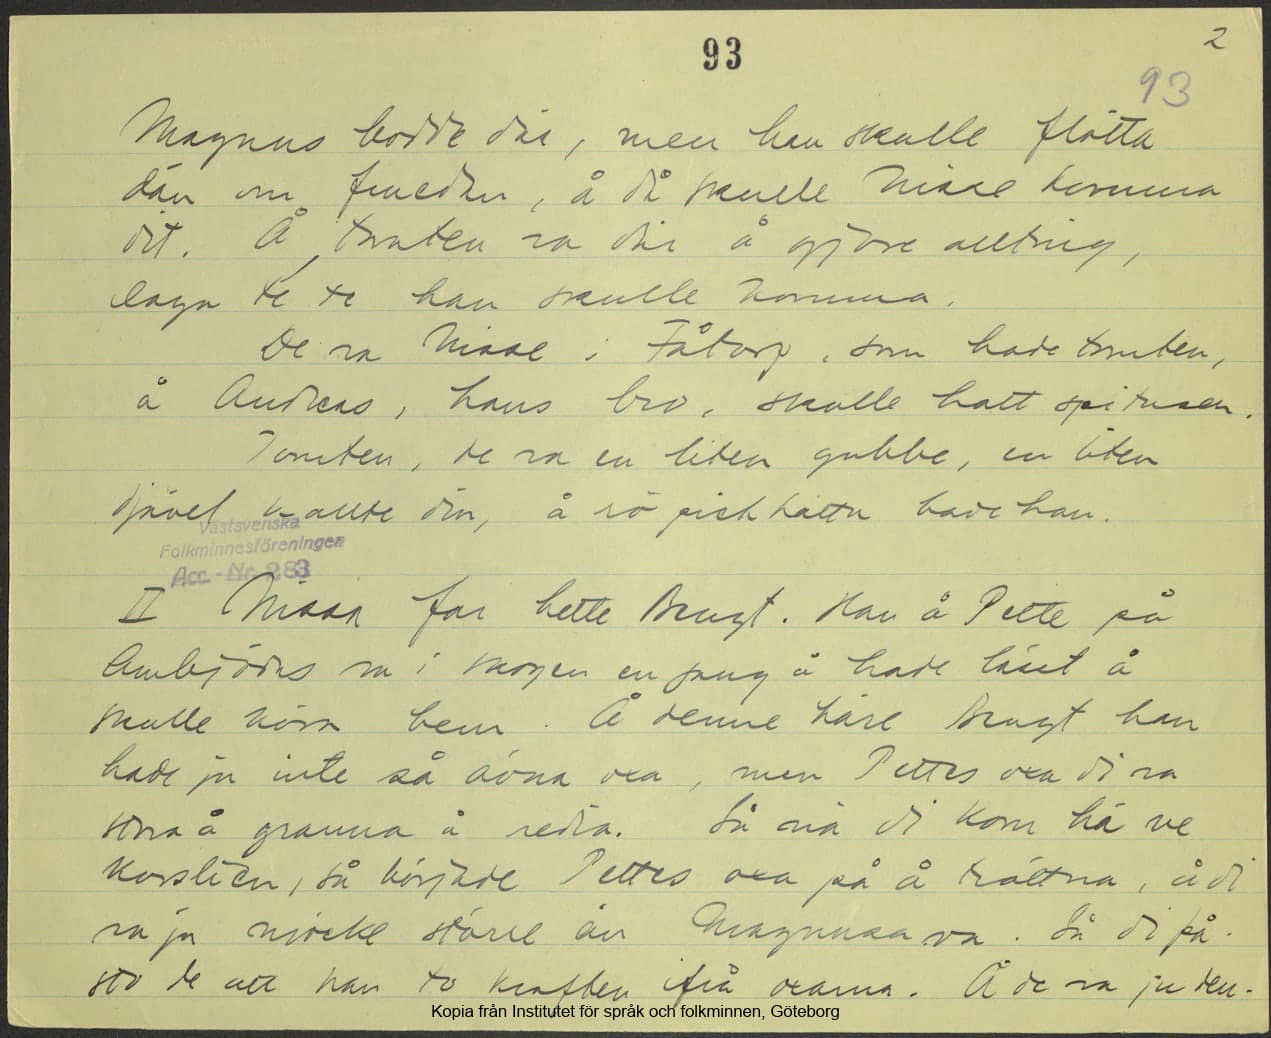 93
2
93
Magnus bodde där, men han skulle flötta
dän om , å då skulle Nisse komma
dit. Å tomten va där å gjore allting,
laga te te han skulle komma.
De va Nisse i Fåtorp, som hade tomten,
å Andreas, hans bro, skulle hatt spiritusen.
Tomten, de va en liten gubbe, en liten
djävel kallte din, å rö pickhätta hade han.
Västsvenska
Folkminnesföreningen
Acc.-Nr. 283
II Nissa far hette Bengt. Han å Pette på
Ambjörns va i skogen en gang å hade lässt å
skulle köra hem. Å denne häre Bengt han
hade ju inte så oxa, men Pettes oxa di va
stora å granna å redia. Så när di kom hä ve
Korslien, så började Pettes oxa på å tröttna, å di
va ju möcke större än Magnusa va. Så di på-
sto de att han to kraften ifrå oxarna. Å de va ju den-
Kopia från Institutet för språk och folkminnen, Göteborg